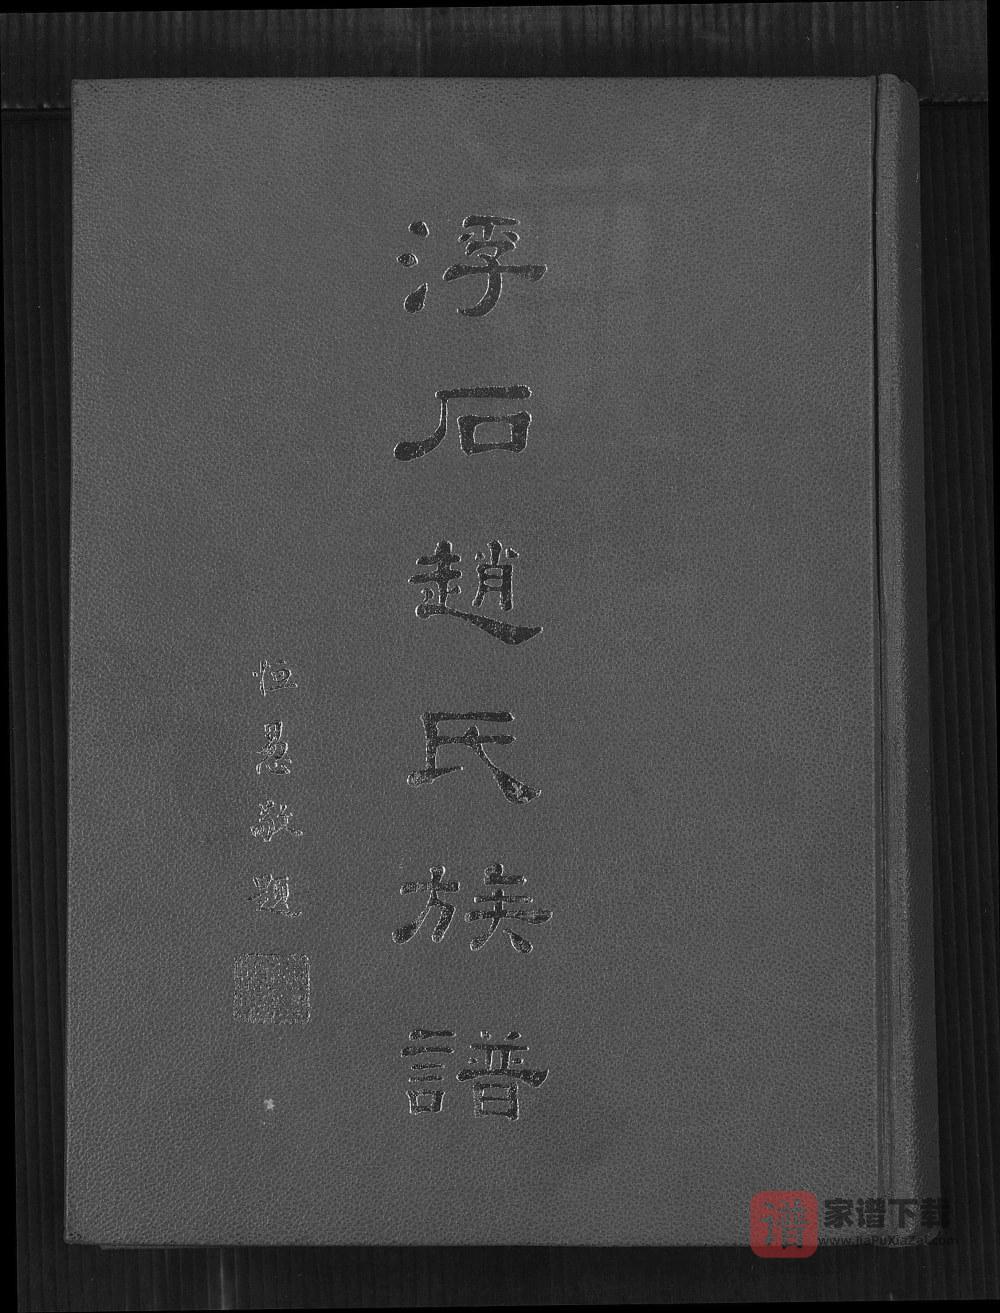 浮石趙氏族譜
恒惖敬題
譜
家谱下载
www.jiaPuXiaZai.com